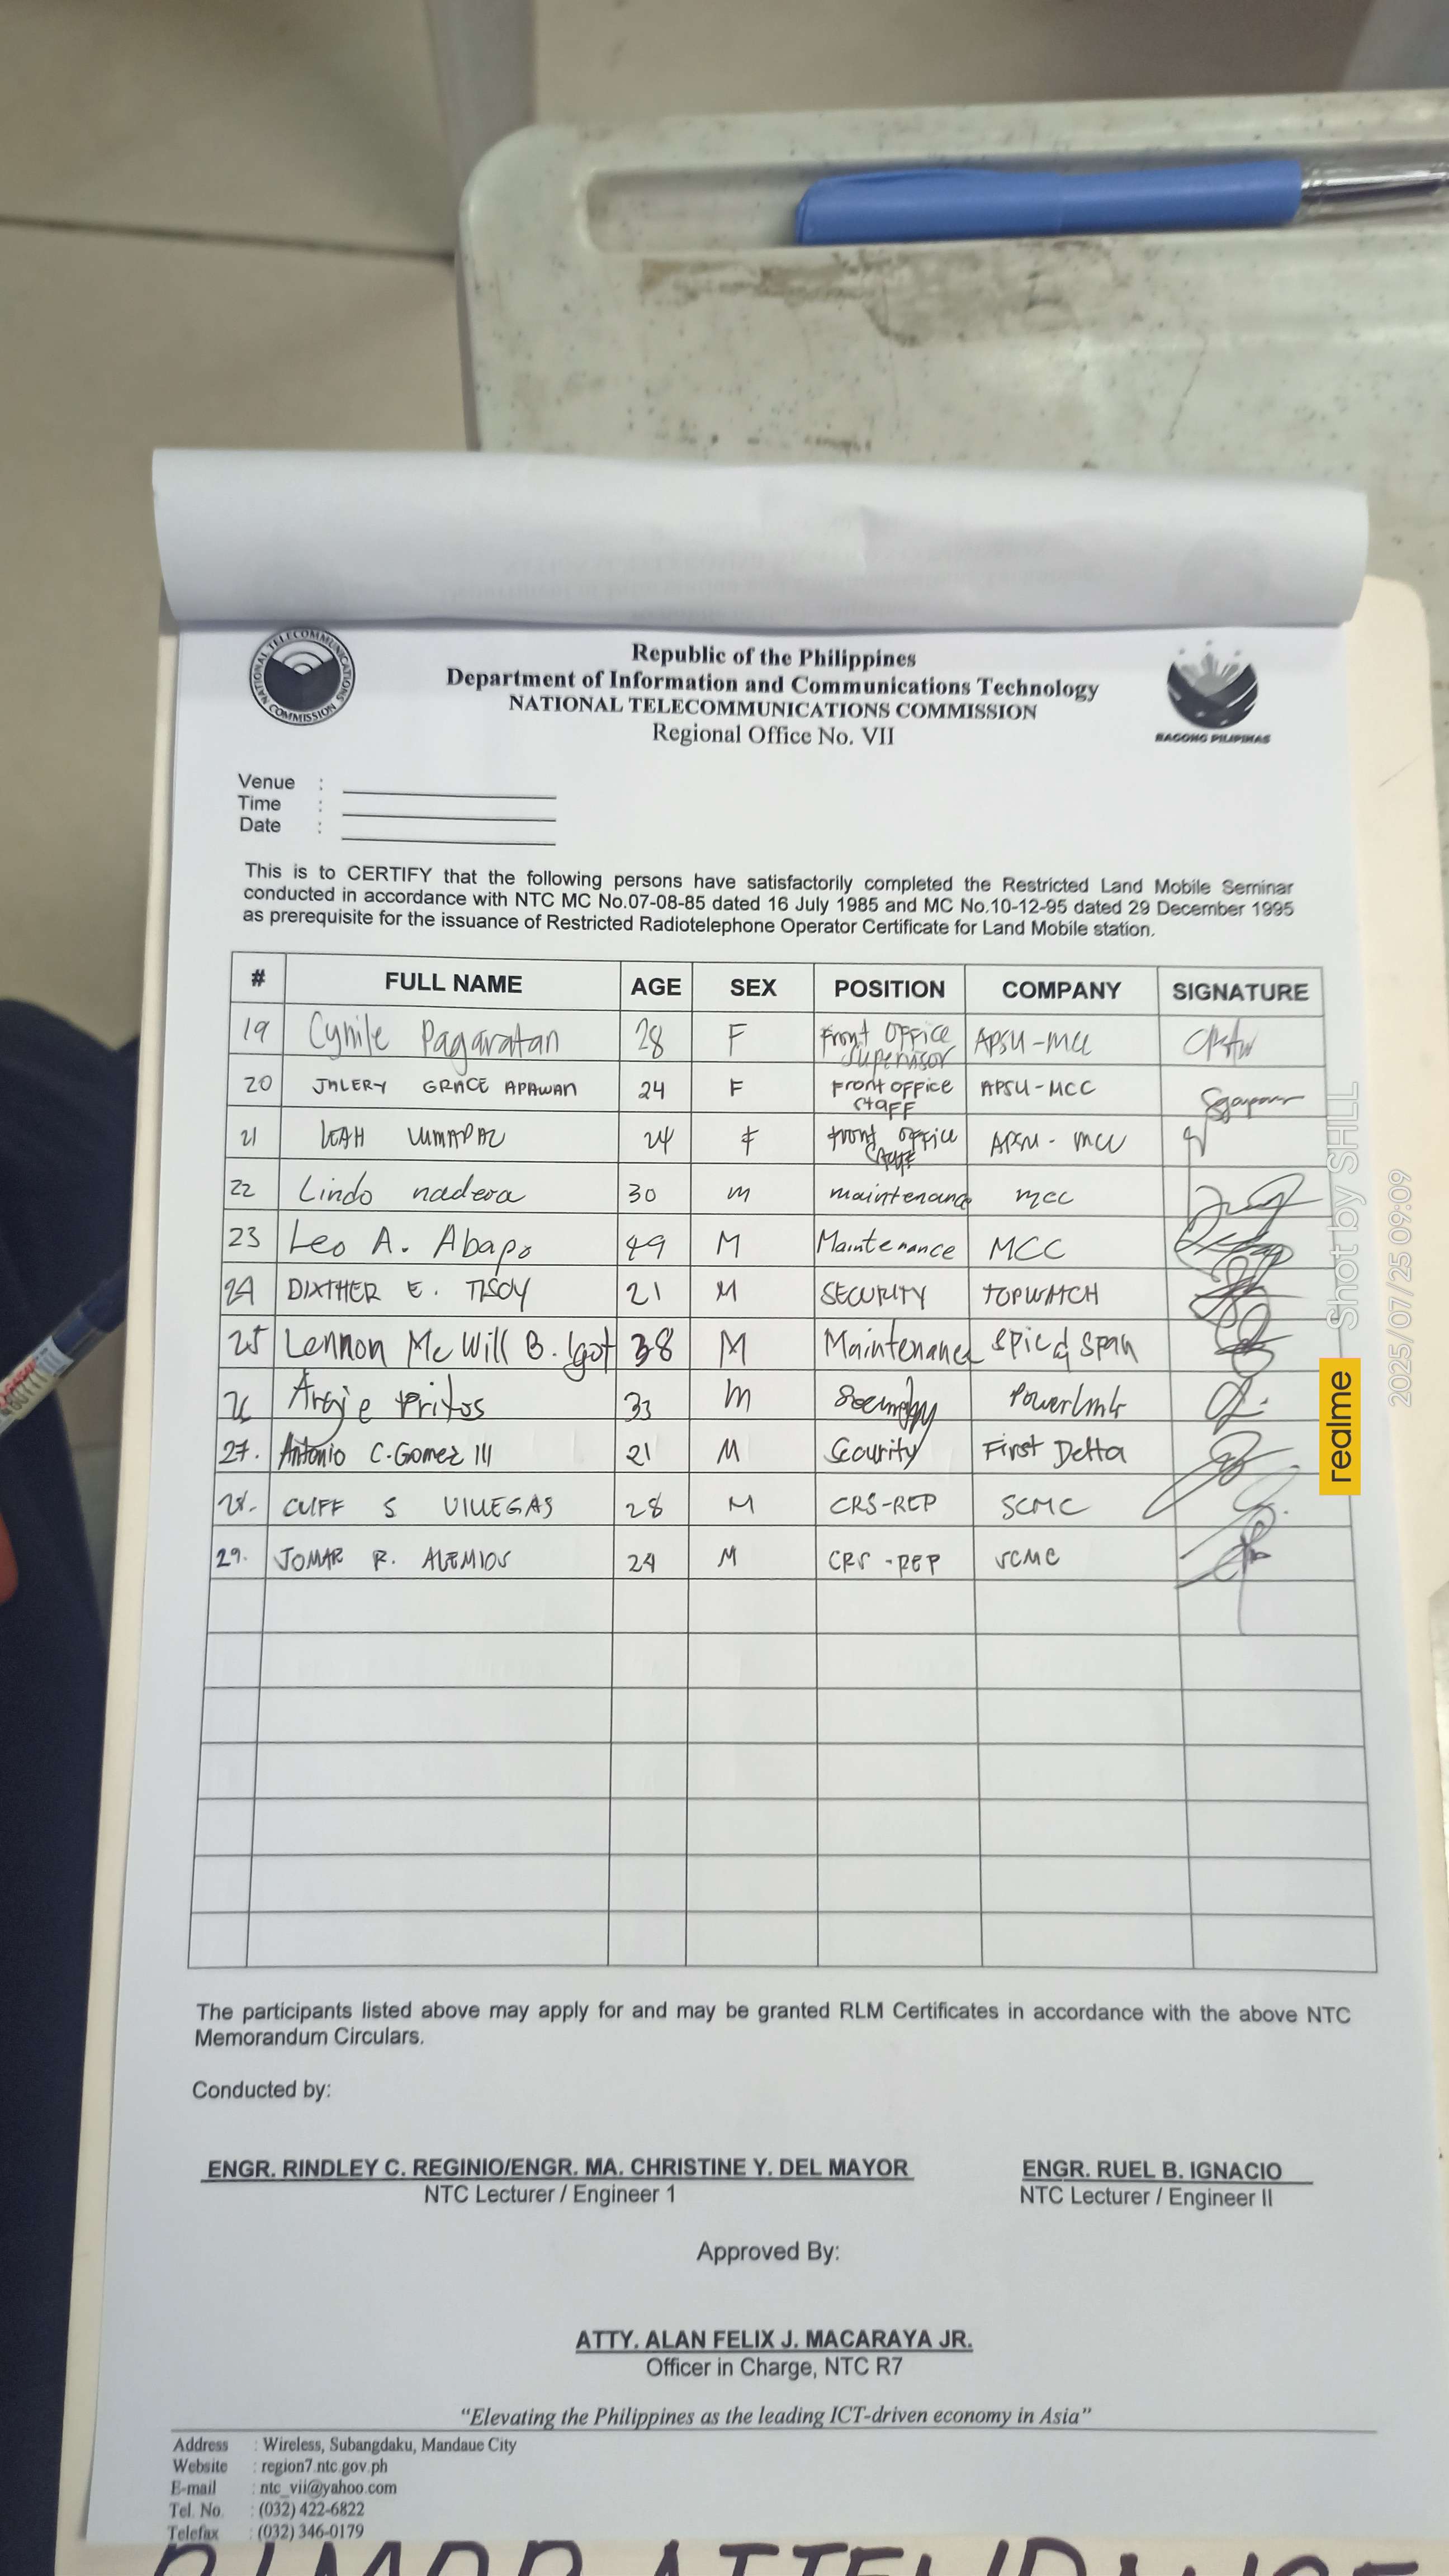 NATIONAL TELECOMMUNICATIONS COMMISSION
Republic of the Philippines
Department of Information and Communications Technology
NATIONAL TELECOMMUNICATIONS COMMISSION
Regional Office No. VII
BAGONG PILIPINAS
Venue :
Time :
Date :
This is to CERTIFY that the following persons have satisfactorily completed the Restricted Land Mobile Seminar
conducted in accordance with NTC MC No.07-08-85 dated 16 July 1985 and MC No.10-12-95 dated 29 December 1995
as prerequisite for the issuance of Restricted Radiotelephone Operator Certificate for Land Mobile station.
# FULL NAME AGE SEX POSITION COMPANY SIGNATURE
19 Cynile Pagaratan 28 F Front Office Supervisor APSU-MCC
20 JALERY GRACE APAWAN 24 F Front Office Staff APSU-MCC
21 LEAH 24 F Front Office APSU-MCC
22 Lindo nadera 30 m maintenance mcc
23 Leo A. Abapo 49 M Maintenance MCC
24 DIXTHER E. TISOY 21 M SECURITY TOPWATCH
25 Lennon Mc Will B. Igot 38 M Maintenance Spic & Span
26 Argie 33 m Security
27. Antonio C. Gomez III 21 M Security First Delta
28. CLIFF S VILLEGAS 28 M CRS-REP SCMC
29. JOMAR R. 24 M CRS-REP SCMC
The participants listed above may apply for and may be granted RLM Certificates in accordance with the above NTC
Memorandum Circulars.
Conducted by:
ENGR. RINDLEY C. REGINIO/ENGR. MA. CHRISTINE Y. DEL MAYOR ENGR. RUEL B. IGNACIO
NTC Lecturer / Engineer 1 NTC Lecturer / Engineer II
Approved By:
ATTY. ALAN FELIX J. MACARAYA JR.
Officer in Charge, NTC R7
“Elevating the Philippines as the leading ICT-driven economy in Asia”
Address : Wireless, Subangdaku, Mandaue City
Website : region7.ntc.gov.ph
E-mail : ntc_vii@yahoo.com
Tel. No. : (032) 422-6822
Telefax : (032) 346-0179
ATTENDANCE
realme Shot by SHILL
2025/07/25 09:09